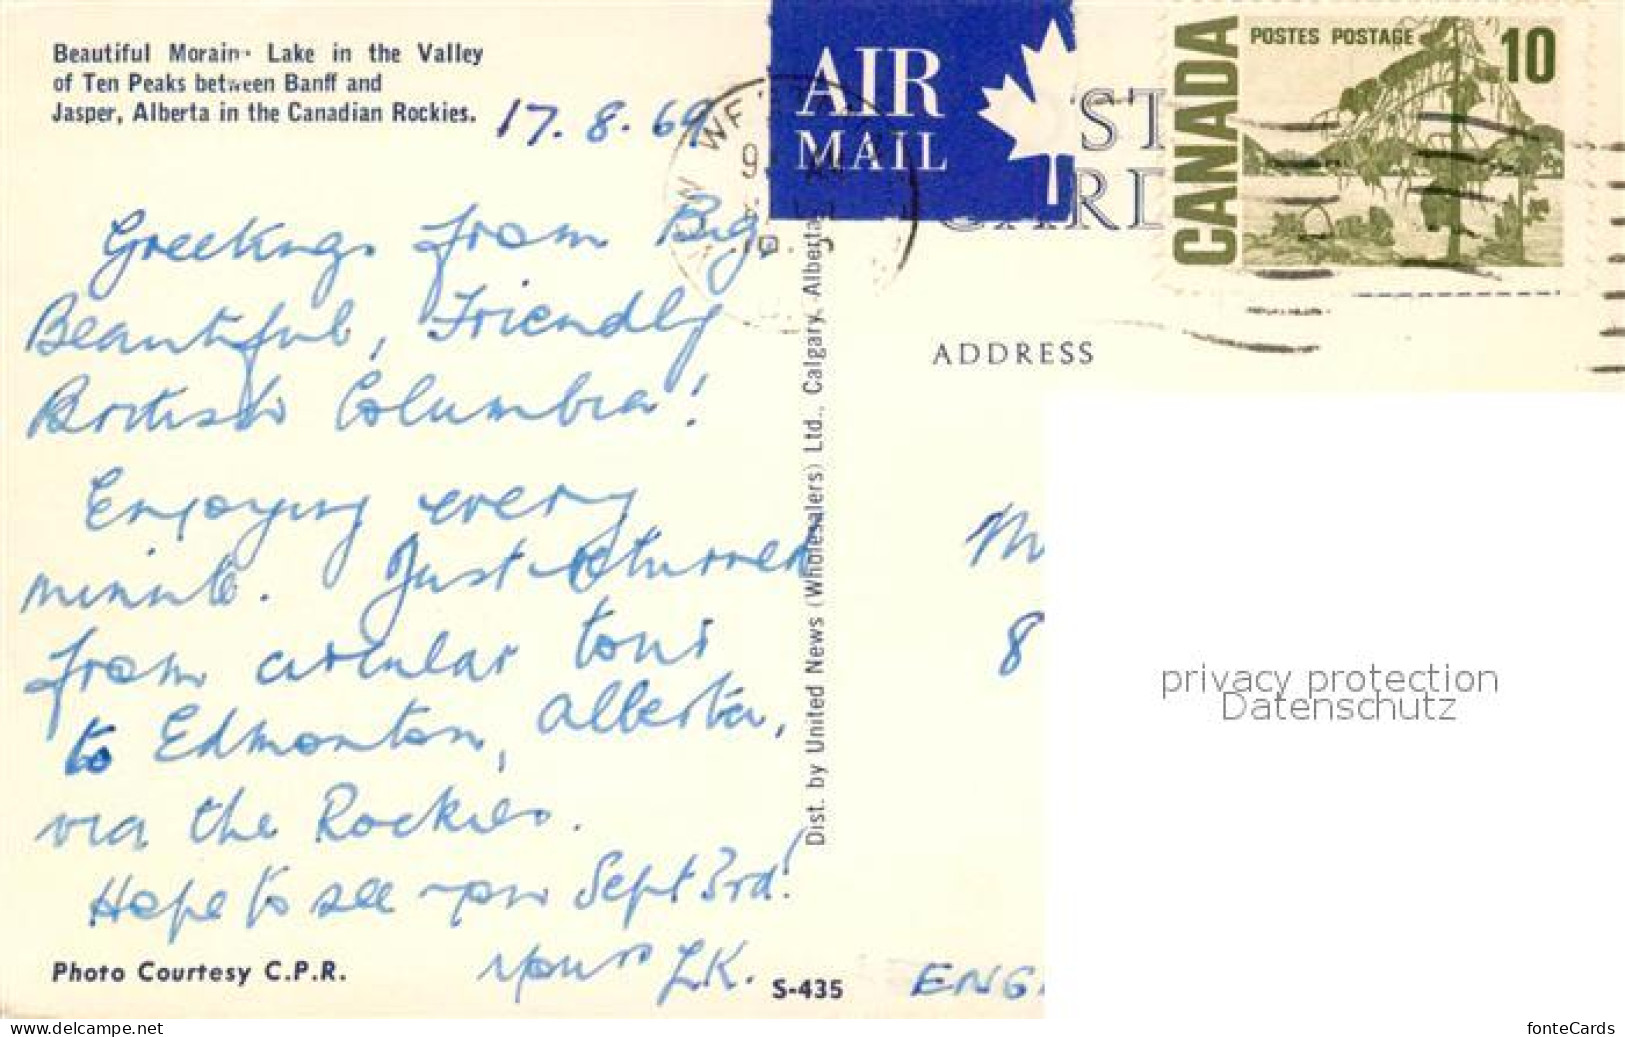 Beautiful Moraine Lake in the Valley
of Ten Peaks between Banff and
Jasper, Alberta in the Canadian Rockies.
17.8.69
Greetings from Big,
Beautiful, Friendly
British Columbia!
Enjoying every
minute. Just returned
from circular tour
to Edmonton, Alberta,
via the Rockies.
Hope to see you Sept 3rd!
Yours L.K.
Photo Courtesy C.P.R.
S-435
Dist. by United News (Wholesalers) Ltd., Calgary, Alberta
AIR
MAIL
ST
ARD
CANADA
POSTES POSTAGE
10
ADDRESS
M
8
ENG
privacy protection
Datenschutz
www.delcampe.net
fonteCards